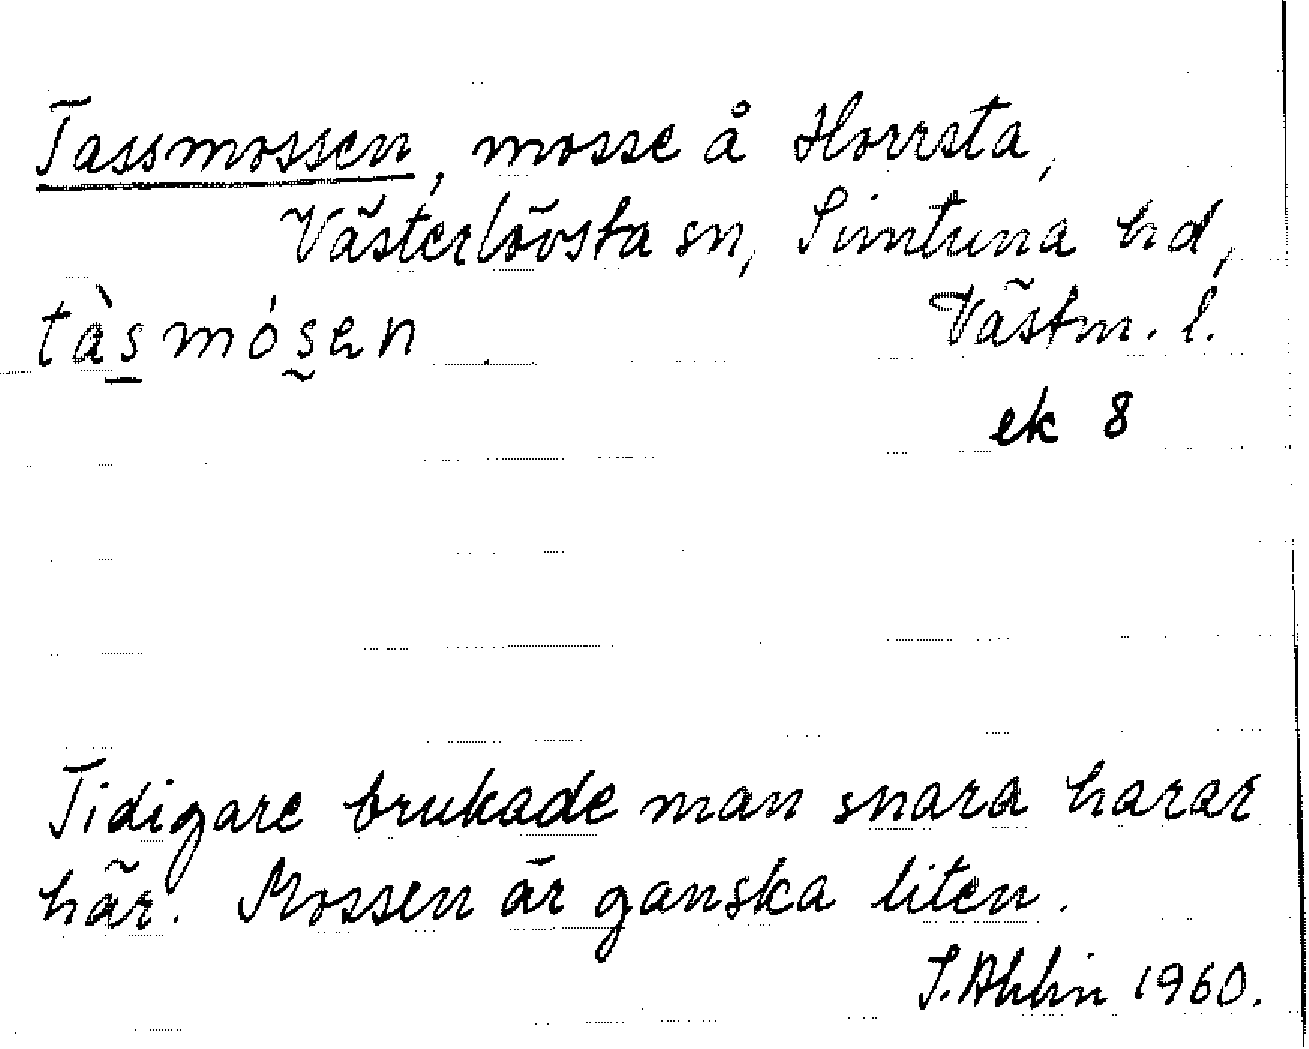 Tassmossen, mosse å Horrsta,
Västerlövsta sn, Simtuna hd,
tàsmósen Västm. l.
ek 8
Tidigare brukade man snara harar
här. Mossen är ganska liten.
S. Ahlin 1960.